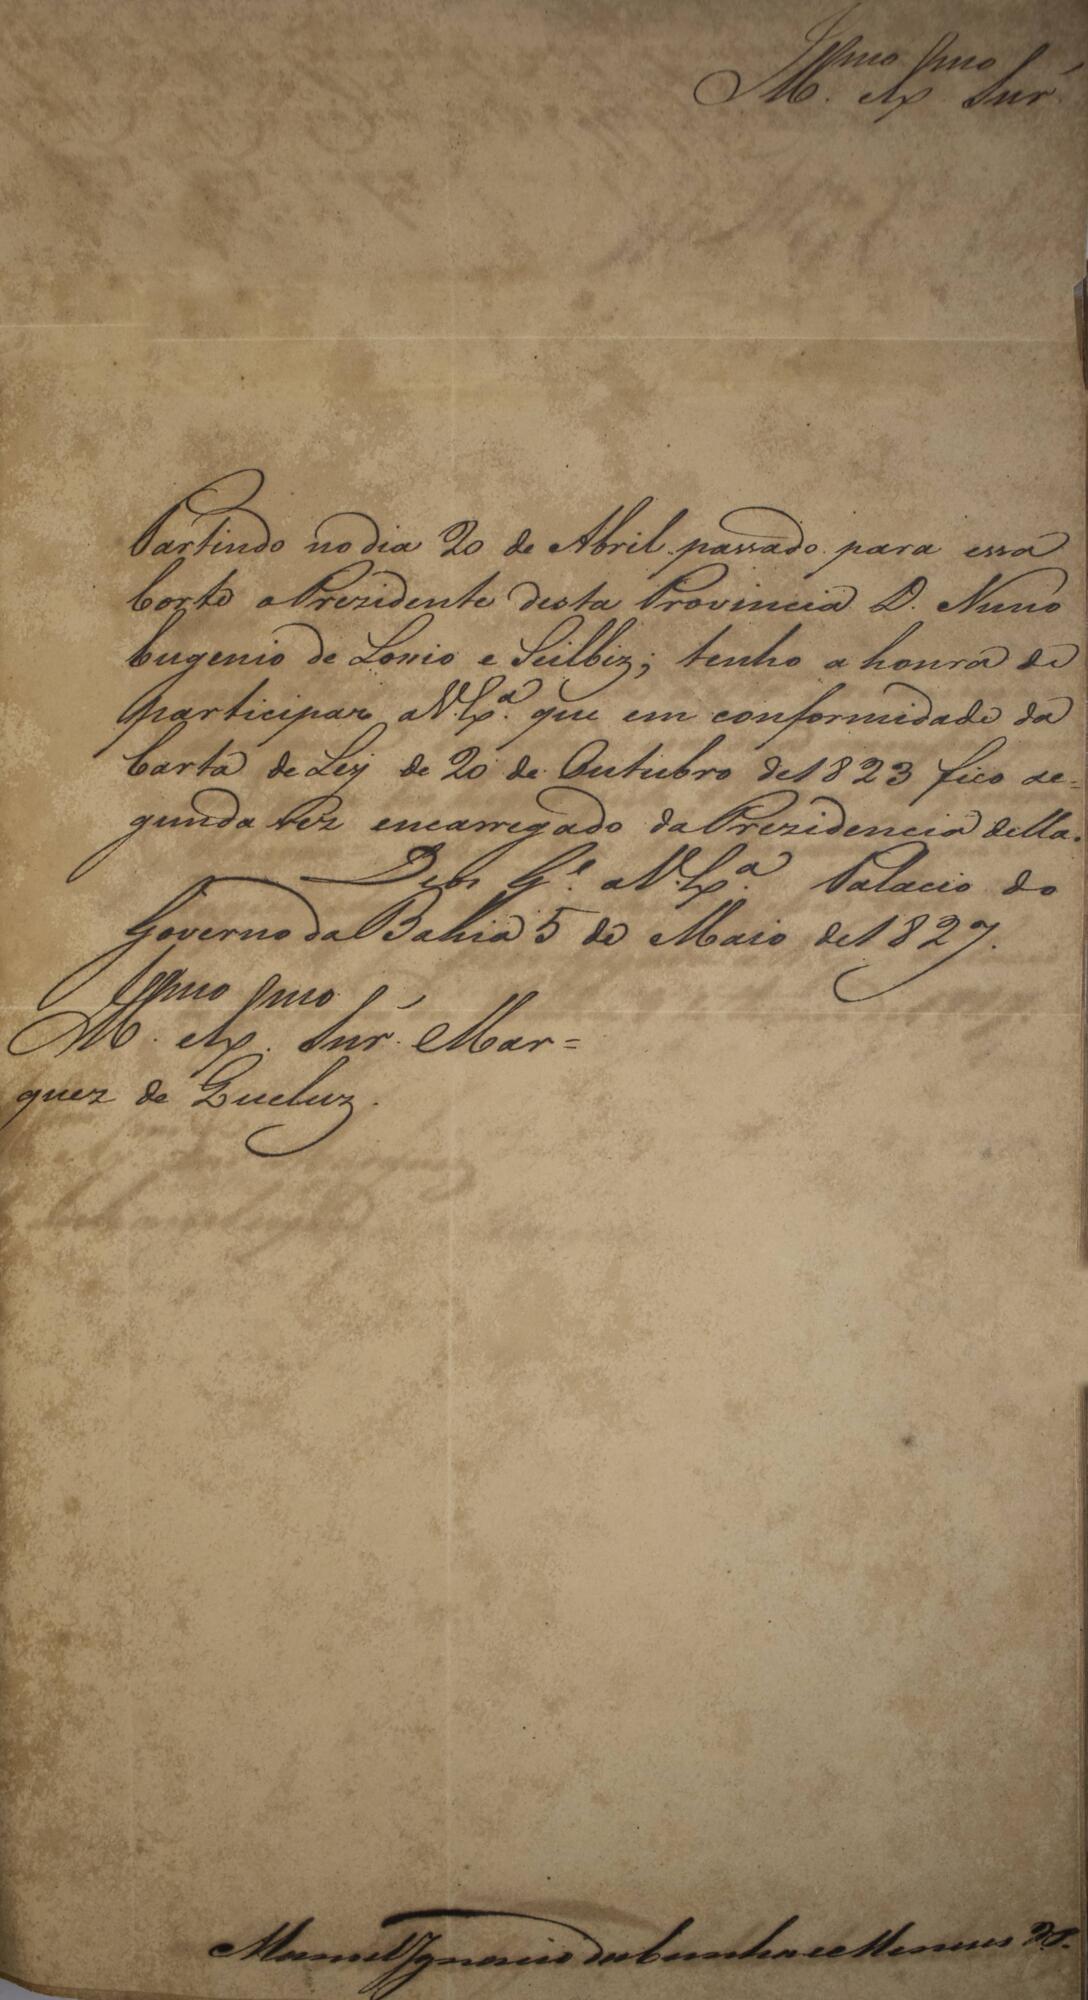 Illmo Exmo
M. e Ex. Snr.
Partindo no dia 20 de Abril passado para essa
Corte o Prezidente desta Provincia D. Nuno
Eugenio de Lossio e Seilbiz; tenho a honra de
participar a V. Exa. que em conformidade da
Carta de Ley de 20 de Outubro de 1823 fico se=
gunda vez encarregado da Prezidencia della.
Deos Ge. a V. Exa. Palacio do
Governo da Bahia 5 de Maio de 1827.
Illmo Exmo
M. e Ex. Snr. Mar=
quez de Queluz.
Manuel Ignacio da Cunha e Menezes